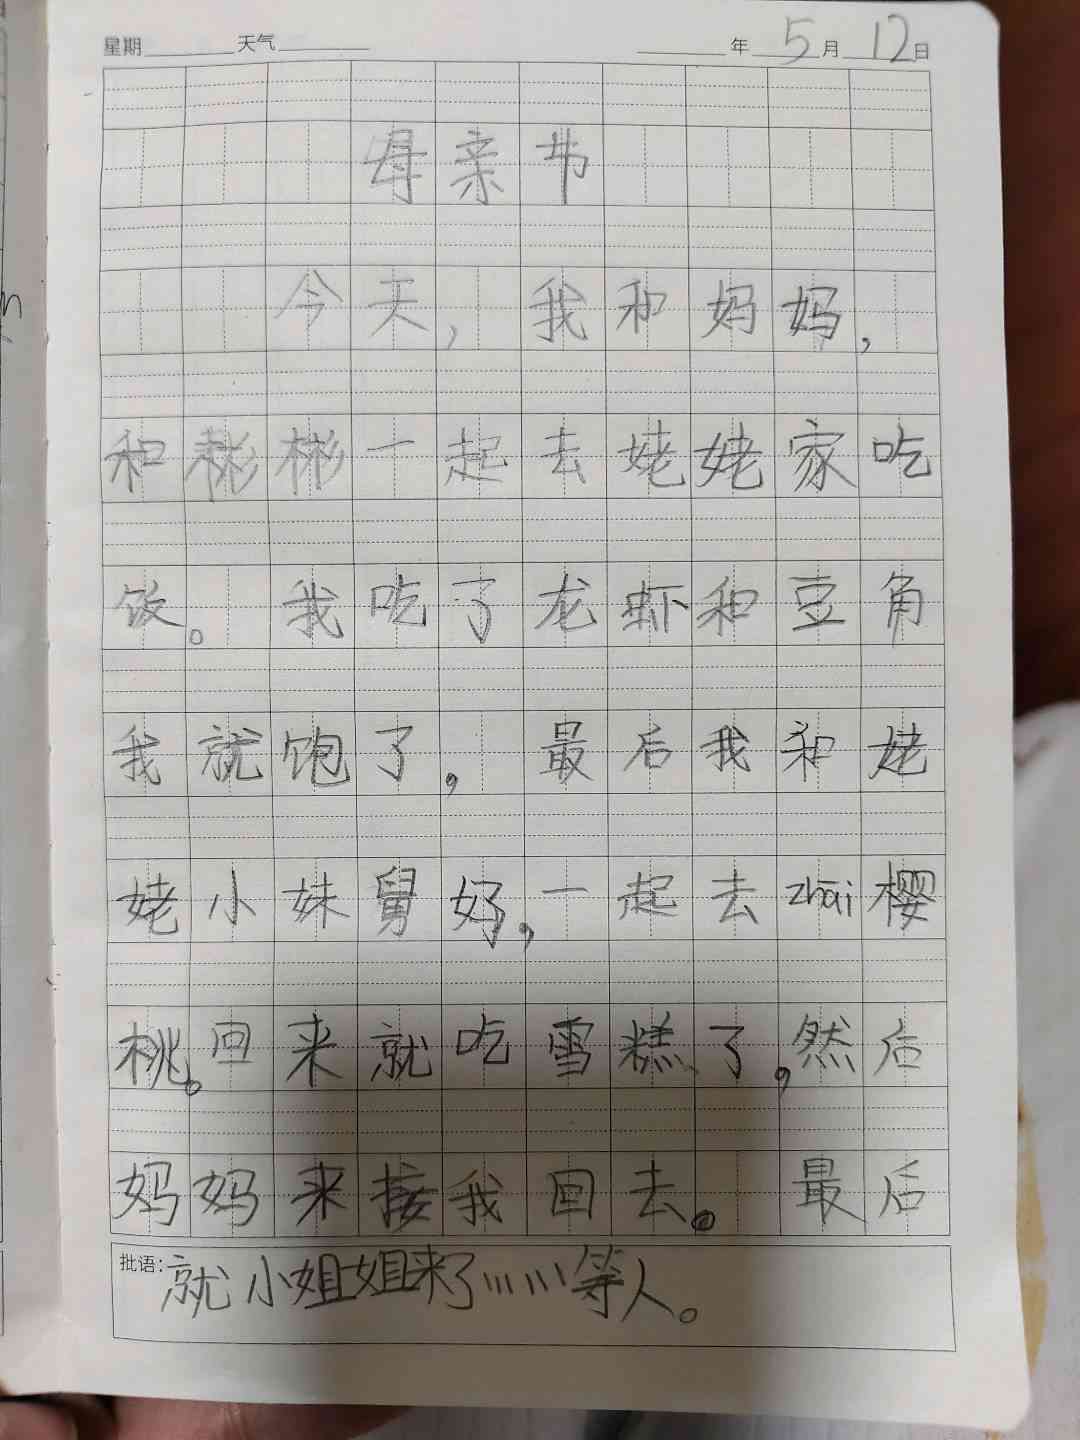 星期 天气 年 5 月 12 日
母亲节
今天,我和妈妈,
和彬彬一起去姥姥家吃
饭。我吃了龙虾和豆角
我就饱了,最后我和姥
姥小妹舅好,一起去zhāi樱
桃。回来就吃雪糕了,然后
妈妈来接我回去。最后
批语:就小姐姐来了……等人。